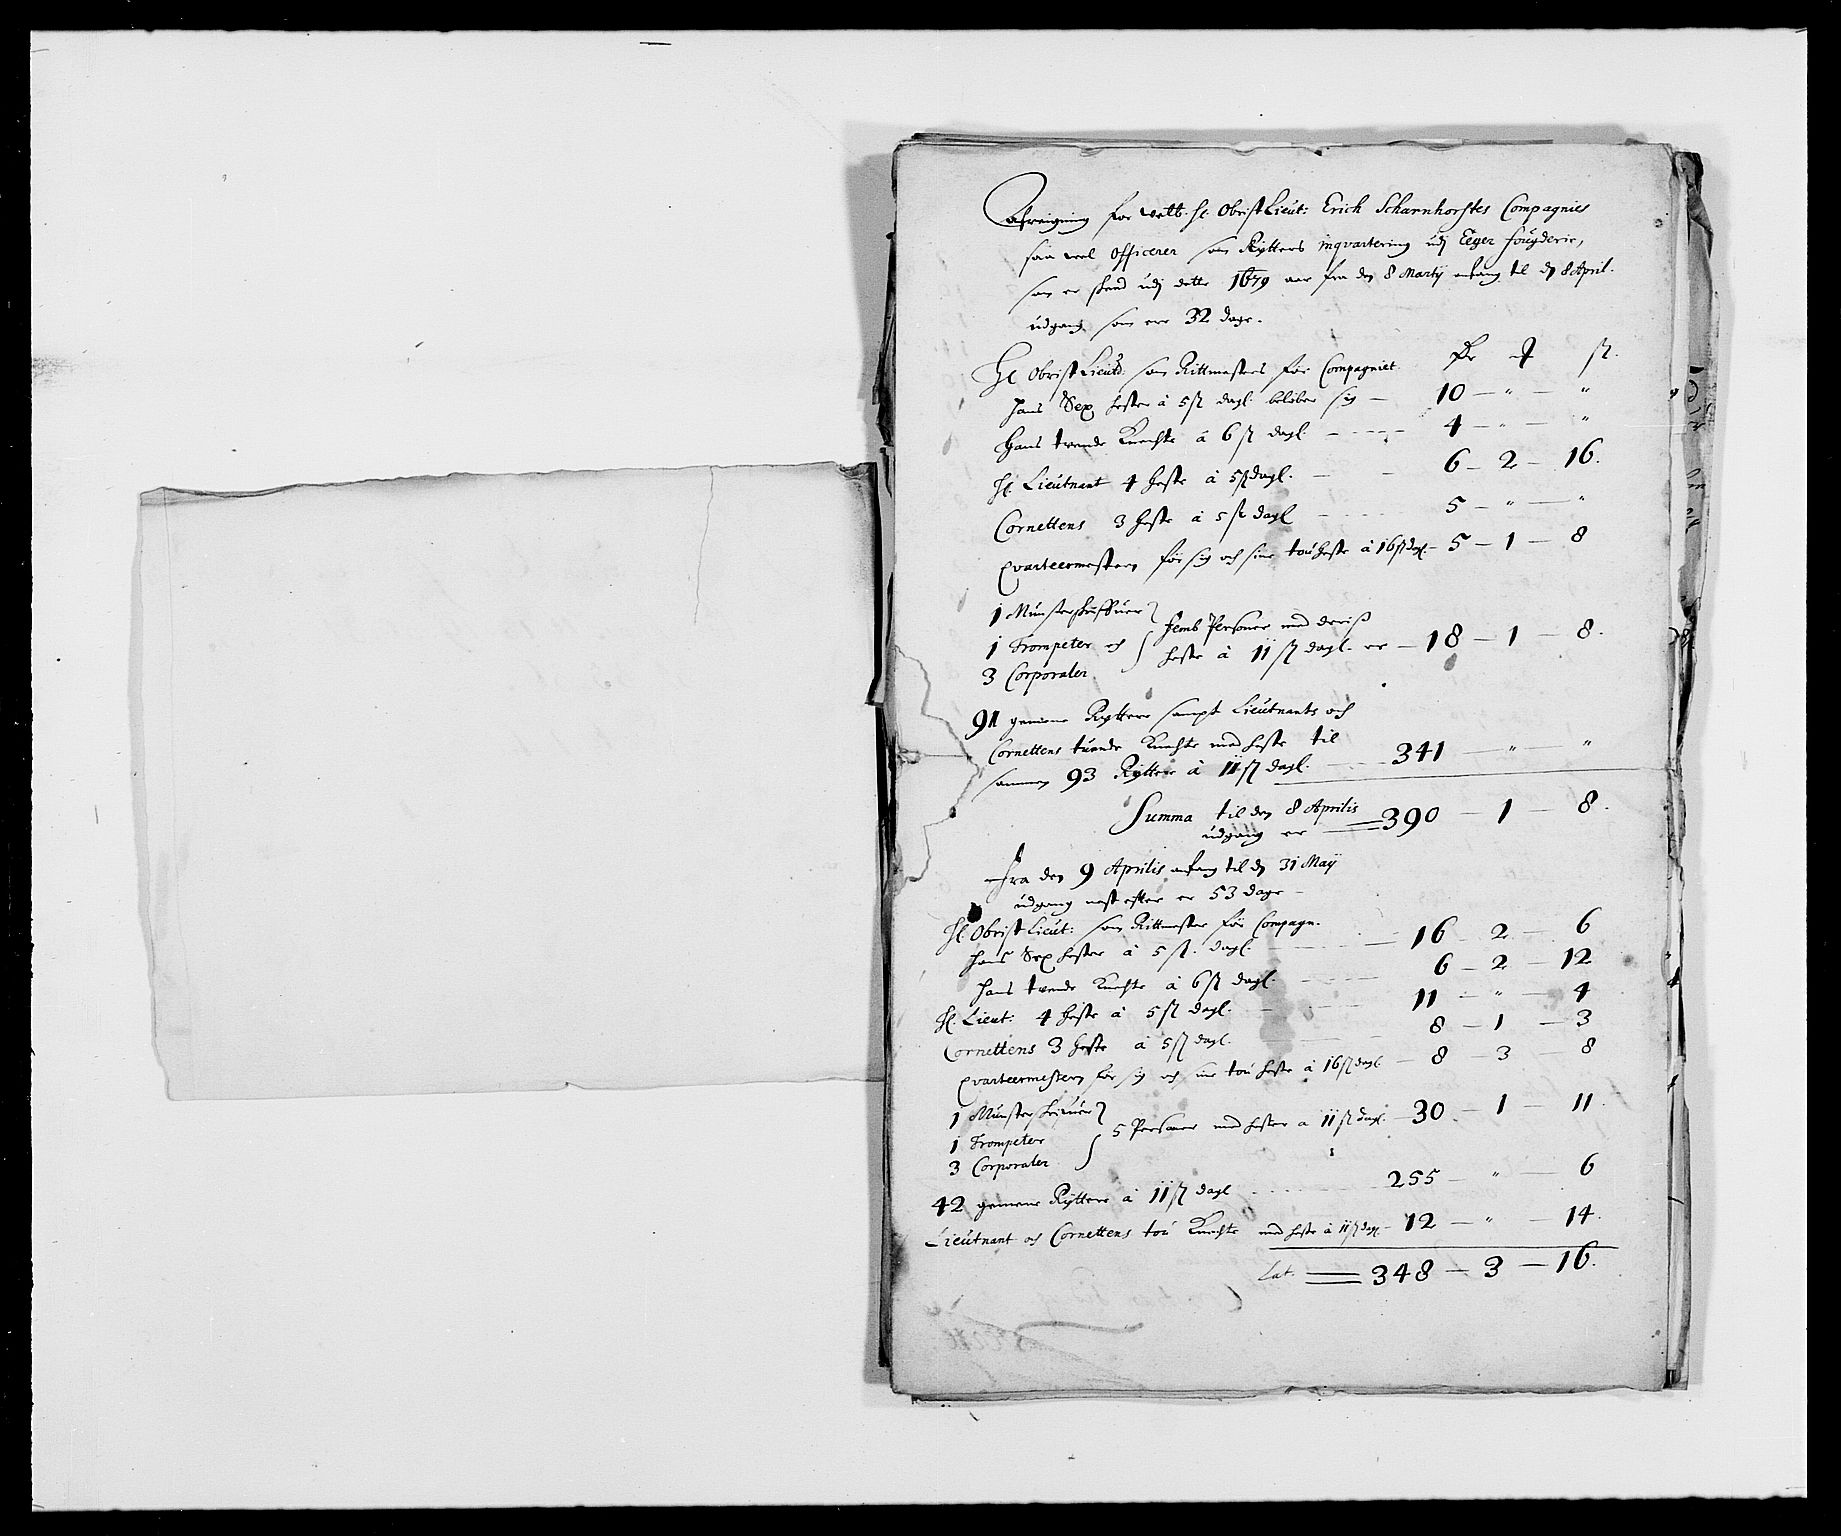 Afreigning for velb. Hr. ObristLieut: Erich Scharnhorstes Compagnies
saa vel Officerer som Rytters inqvartering udj Eeger fougderie,
som er skeed udj dette 1679 aar fra den 8 Martij anfang til den 8 April.
udgang som ere 32 dage.
Hr ObristLieutd. som Rittmesters for Compagniet
hans Sex hester à 5 sz dagl. beløber sig — 10 — " — "
Hans tvende Knechte à 6 sz dagl. — 4 — " — "
Hr. Lieutnant 4 heste à 5 sz dagl. — 6 — 2 — 16.
Cornettens 3 heste à 5 sz dagl — 5 — " — "
Qvarteermesteren for sig och sine tou heste à 16 sz dagl. — 5 — 1 — 8
1 Münsterskrifver
1 Trompeter och
3 Corporaler
femb Personer med deris
heste à 11 sz dagl. er — 18 — 1 — 8.
91 gemene Ryttere sampt Lieutnants och
Cornettens tuende Knechte med heste til
sammen 93 Ryttere à 11 sz dagl. — 341 — " — "
Summa til den 8 Aprilis
udgang er 390 — 1 — 8.
Fra den 9 Aprilis anfang til den 31 Maij
udgang nest efter er 53 dage
Hr. ObristLieut: som Rittmester for Compagn.
hans Sex hester à 5 sz. dagl. — 16 — 2 — 6
hans tvende Knechte à 6 sz dagl. — 6 — 2 — 12
Hr. Lieut: 4 heste à 5 sz dagl. — 11 — " — 4
Cornettens 3 heste à 5 sz dagl. — 8 — 1 — 3
Qvarteermesteren for sig och sine tou heste à 16 sz dagl. — 8 — 3 — 8
1 Münsterskrifuer
1 Trompeter
3 Corporaler
5 Personer med hester a 11 sz dagl. 30 — 1 — 11.
42 gemene Ryttere à 11 sz dagl — 255 — " — 6
Lieutnant och Cornettens tou Knechte med heste à 11 sz dagl — 12 — " — 14.
Lat. 348 — 3 — 16.